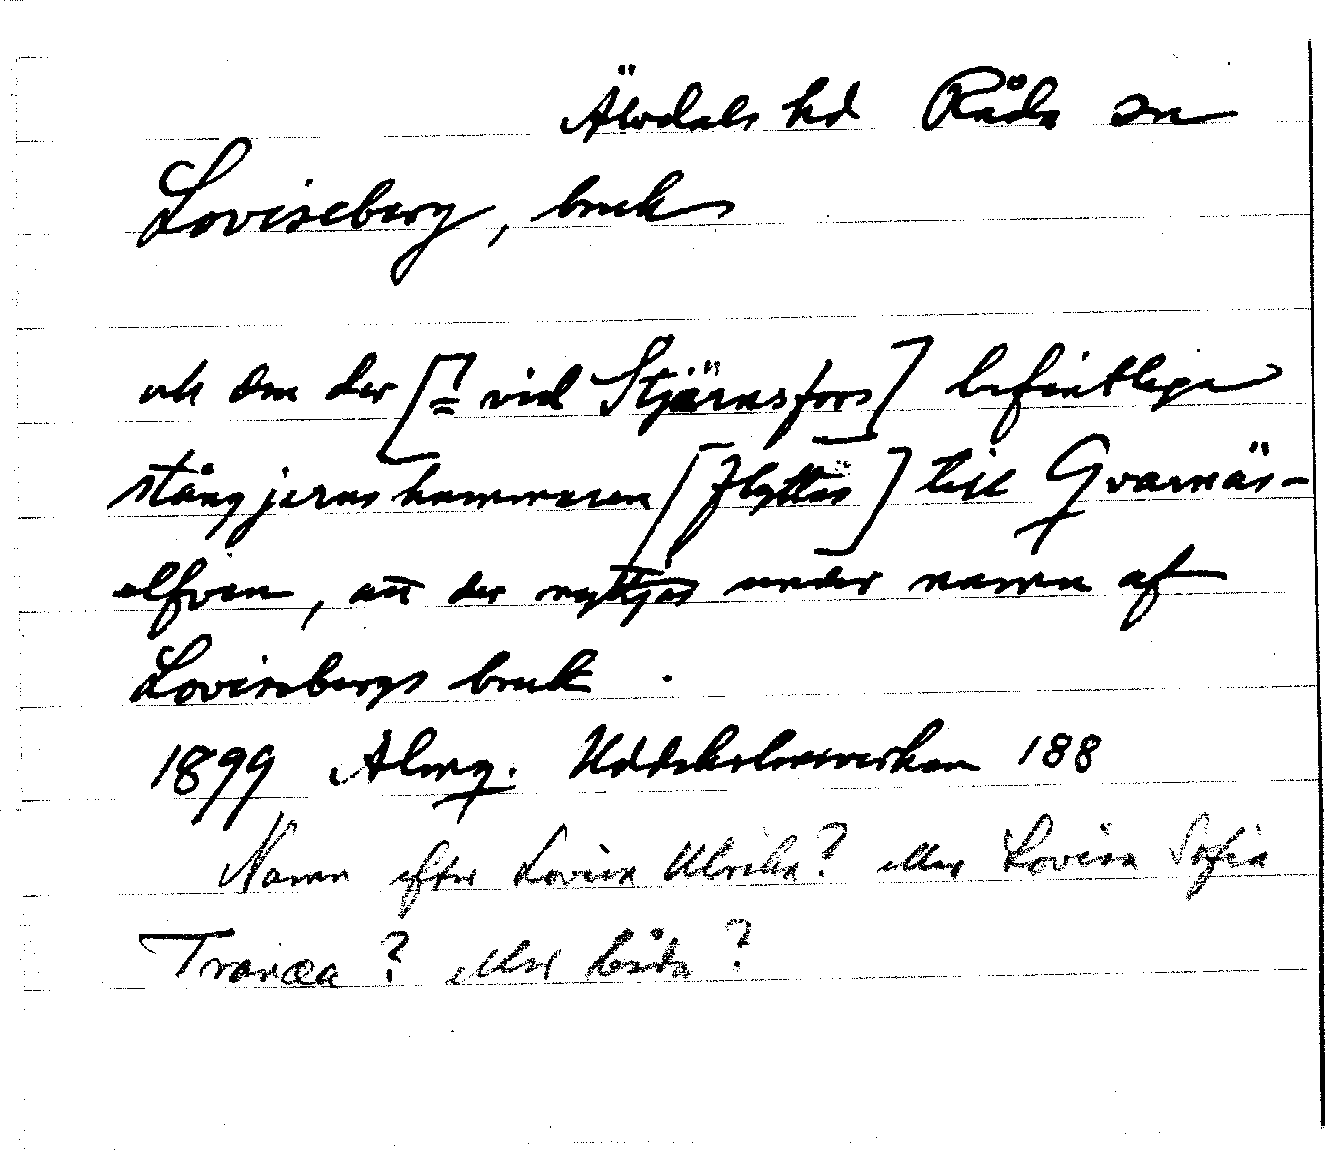 Älvdals hd Råda sn
Loviseberg, bruk
och den der [= vid Stjärnsfors] befintliga
stångjernshammaren [flyttas] till Qvarnäs-
elfven, att der nyttjas under namn af
Lovisebergs bruk.
1899 Almq. Uddeholmsverken 188
Namn efter Lovisa Ulrika? eller Lovisa Sofia
Tranæa? eller båda?